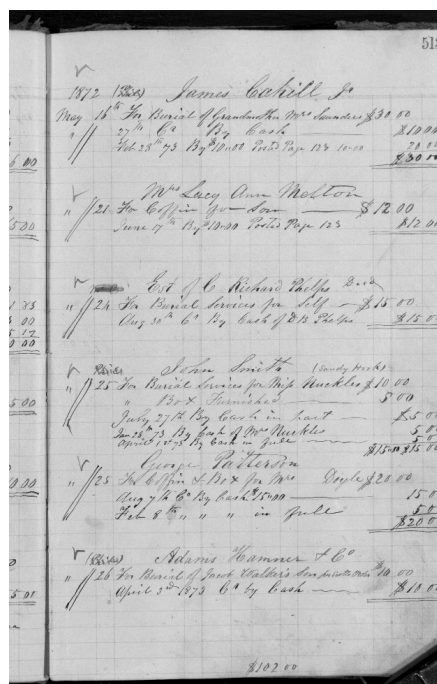 513
1872 James Cahill Jr
May 16th For Burial of Grandmother Mrs Saunders $30.00
" 27th Cr By Cash $10.00
Feb 28th 73 By $10.00 Posted Page 123 10.00 20.00
$30.00
Mrs Lucy Ann Melton
" 21 For Coffin for Son $12.00
June 17th By $10.00 Posted Page 123 $12.00
Est of C Richard Phelps Decd
" 24 For Burial Services for Self $15.00
Aug 30th Cr By Cash of D B Phelps $15.00
John Smith (Sandy Hook)
" 25 For Burial Services for Miss Nuckles $10.00
" Box Furnished 5.00
July 27th By Cash in part $5.00
Jan 28th 73 By Cash of Mrs Nuckles 5.00
April 1873 By Cash in full 5.00
$15.00 $15.00
George Patterson
" 25 For Coffin & Box for Mrs Doyle $20.00
Aug 7th Cr By Cash $15.00 15.00
Feb 8th " " " in full 5.00
$20.00
Adams Hamner & Co
" 26 For Burial of Jacob Walker's Son $10.00
April 3rd 1873 Cr by Cash $10.00
$102.00